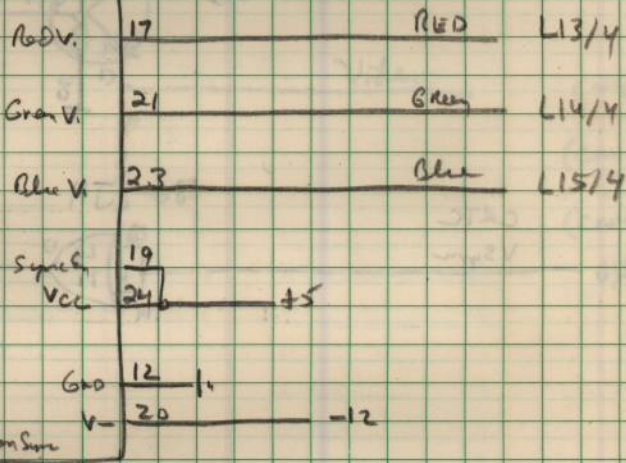 Red V. 17 RED L13/4
Green V. 21 Green L14/4
Blue V. 23 Blue L15/4
Synch 19
VCC 24 +5
GND 12
V- 20 -12